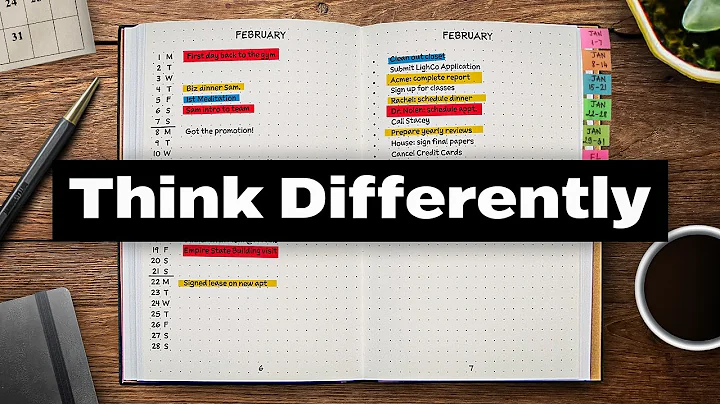 24
25
31
FEBRUARY
1 M First day back to the gym
2 T
3 W
4 T Biz dinner Sam.
5 F 1st Meditation
6 S Sam intro to team
7 S
8 M Got the promotion!
9 T
10 W
19 F Empire State Building visit
20 S
21 S
22 M Signed lease on new apt
23 T
24 W
25 T
26 F
27 S
28 S
6
FEBRUARY
Clean out closet
Submit LighCo Application
Acme: complete report
Sign up for classes
Rachel: schedule dinner
Dr. Nolen: schedule appt.
Call Stacey
Prepare yearly reviews
House: sign final papers
Cancel Credit Cards
7
JAN
1-7
JAN
8-14
JAN
15-21
JAN
22-28
JAN
29-31
Think Differently